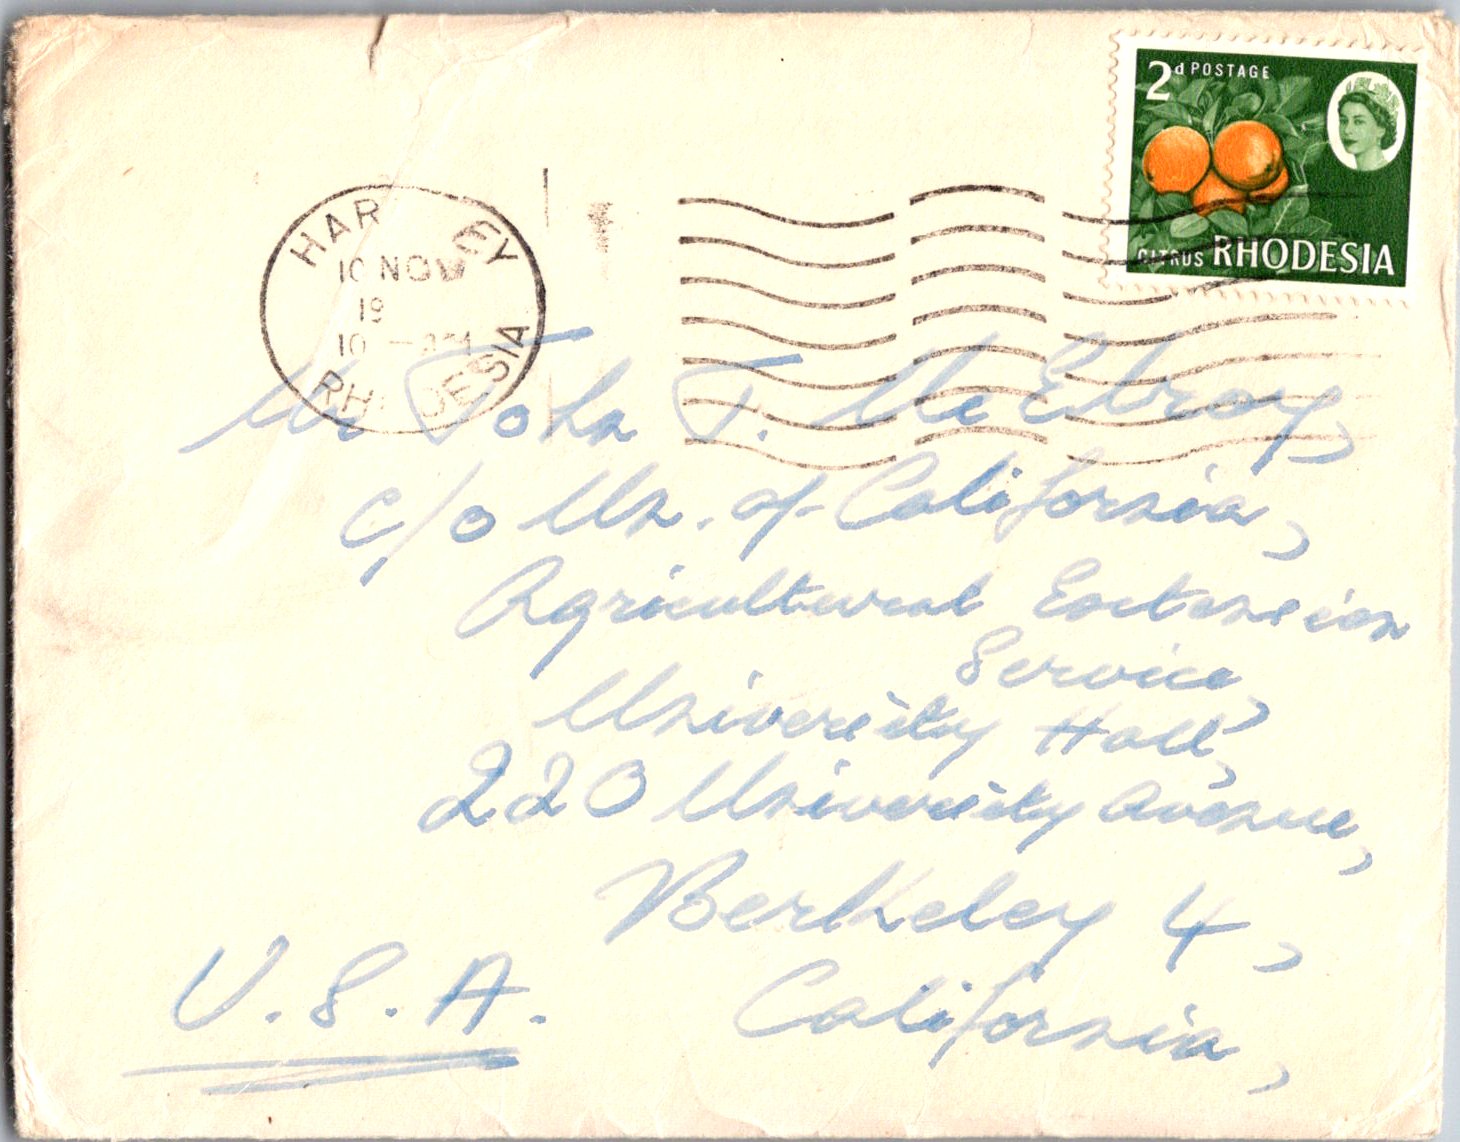 2d POSTAGE
CITRUS RHODESIA
HAR EY
10 NOV
19
10 —
RH DESIA
Mr John T. McElroy,
c/o Un. of California,
Agricultural Extension
Service,
University Hall,
220 University Avenue,
Berkeley 4,
California,
U.S.A.